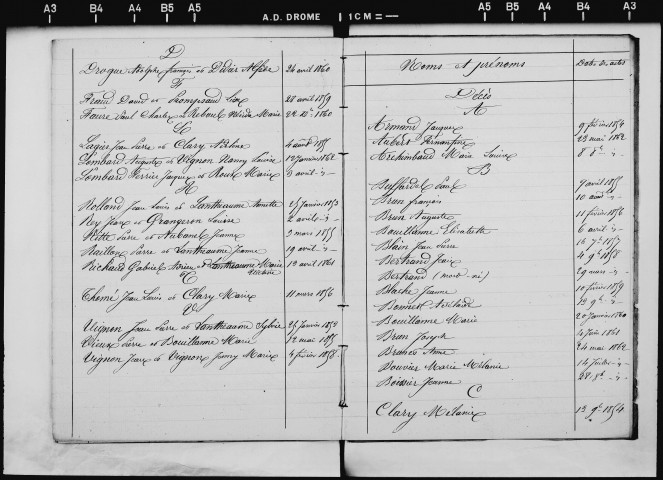 A3 B4 A4 B5 A5 A.D. DROME 1 CM = A5 B5 A4 B4 A3
D
Droque Adolphe françois et Didier 24 avril 1860
F
Fraud David et 28 avril 1859
Faure Paul Charles et Marie 1860
L
Lagier Jean Pierre et Clary Adeline 4 août 1851
Lombard Auguste et Vignon Nancy Louise 12 Janvier 1862
Lombard Verrier Jacques et Roux Marie 9 avril
R
Rolland Jean Louis et Lantheaume 25 Janvier 1853
Rey Jean et Grangeron Louise 2 avril
Pierre et Aubanel Jeanne 3 mars 1855
Raillon Pierre et Lantheaume Jeanne 19 avril
Richard Gabriel et Lantheaume Marie 13 avril 1861
T
Thomé Jean Louis et Clary Marie 11 mars 1856
V
Vignon Jean Pierre et Lantheaume Sylvie Janvier 1853
Vieux Pierre et Bouillanne Marie 12 mai 1855
Vignon Jean et Vignon fanny Marie 4 février 1858
Noms et prénoms Date des actes
Décès
A
Armand Jacques 9 février 1854
Aubert 23 mai 1862
Archimbaud Marie Louise 8 8bre
B
Buffardel Paul 9 avril 1855
Brun françois 10 août
Brun Auguste 11 février 1856
Bouillanne Elisabeth 6 avril
Blain Jean Pierre 1857
Bertrand Jean 4 9bre 1858
Bertrand (mort-né) 29 mars
Blache Jeanne 10 février 1859
Bonnet Adélaïde
Bouillanne Marie 20 Janvier 1860
Brun Joseph 4 Juin 1861
Brance Anne 24 mai 1862
Bouvier Marie Mélanie 14 Juillet
Boissier Jeanne 28 8bre
C
Clary Mélanie 13 9bre 1854